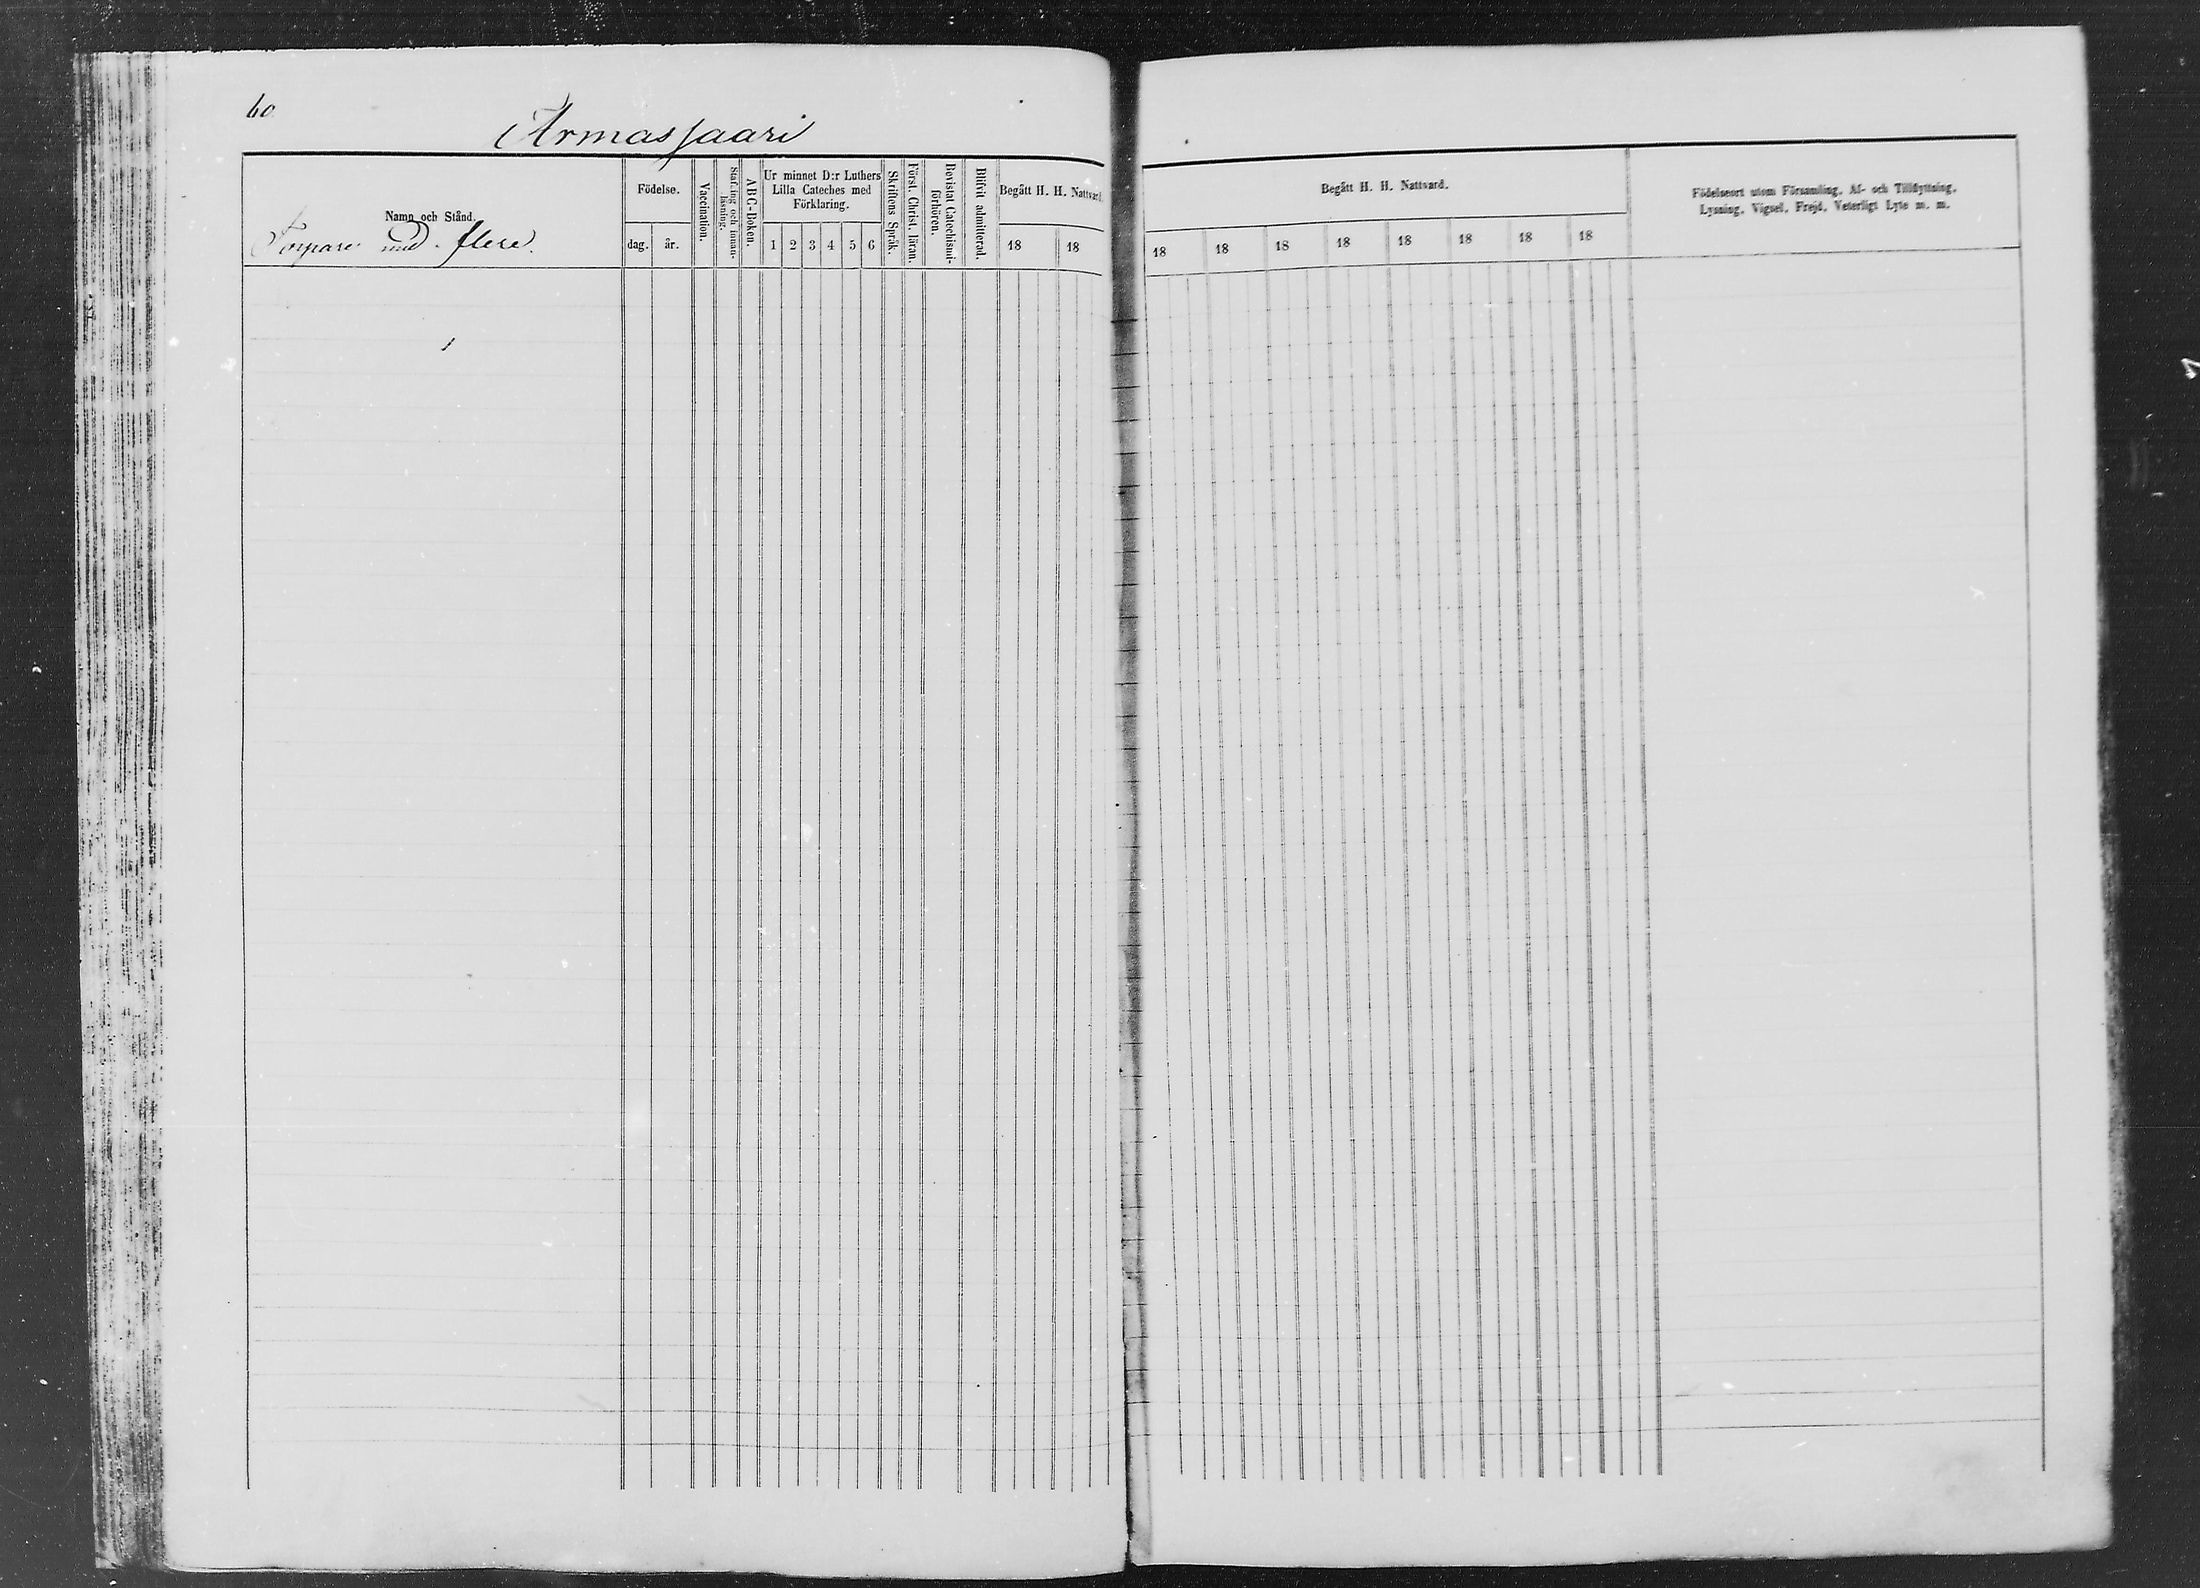 60
Armassaari
Namn och Stånd.
Torpare med flere.
Födelse.
dag. år.
Vaccination.
Stafning och innanläsning.
ABC-Boken.
Ur minnet D:r Luthers
Lilla Cateches med
Förklaring.
1 2 3 4 5 6
Skriftens Språk.
Först. Christ. läran.
Bevistat Catechismi-
förhören.
Blifvit admitterad.
Begått H. H. Nattvard.
18 18
Begått H. H. Nattvard.
18 18 18 18 18 18 18 18
Födelseort utom Församling, Af- och Tillflyttning,
Lysning, Vigsel, Frejd, Veterligt Lyte m. m.